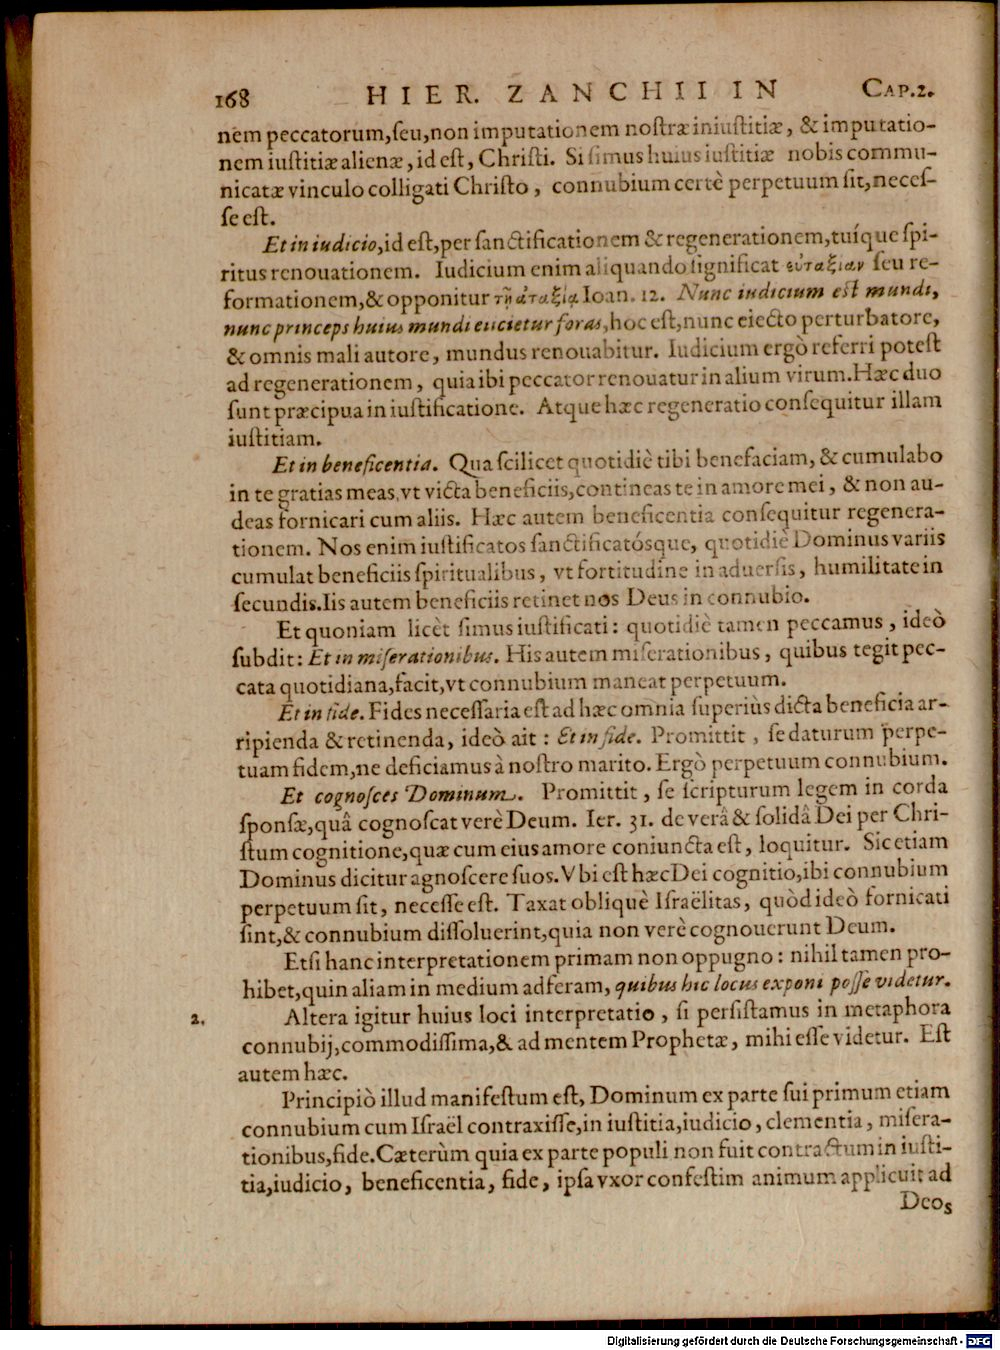 168 HIER. ZANCHII IN CAP.2.
nem peccatorum,ſeu,non imputationem noſtræ iniuſtitiæ, & imputatio-
nem iuſtitiæ alienæ, id eſt, Chriſti. Si ſimus huius iuſtitiæ nobis commu-
nicatæ vinculo colligati Chriſto, connubium certè perpetuum ſit, neceſ-
ſe eſt.
Et in iudicio,id eſt,per ſanctificationem & regenerationem,tuíque ſpi-
ritus renouationem. Iudicium enim aliquando ſignificat εὐταξίαν ſeu re-
formationem,& opponitur τῇ ἀταξίᾳ Ioan. 12. Nunc iudicium est mundi,
nunc princeps huius mundi eiicietur foras,hoc eſt,nunc eiecto perturbatore,
& omnis mali autore, mundus renouabitur. Iudicium ergò referri poteſt
ad regenerationem, quia ibi peccator renouatur in alium virum.Hæc duo
ſunt præcipua in iuſtificatione. Atque hæc regeneratio conſequitur illam
iuſtitiam.
Et in beneficentia. Qua ſcilicet quotidiè tibi benefaciam, & cumulabo
in te gratias meas,vt victa beneficiis,contineas te in amore mei, & non au-
deas fornicari cum aliis. Hæc autem beneficentia conſequitur regenera-
tionem. Nos enim iuſtificatos ſanctificatóſque, quotidiè Dominus variis
cumulat beneficiis ſpiritualibus, vt fortitudine in aduerſis, humilitate in
ſecundis.Iis autem beneficiis retinet nos Deus in connubio.
Et quoniam licèt ſimus iuſtificati: quotidiè tamen peccamus, ideò
ſubdit: Et in miſerationibus. His autem miſerationibus, quibus tegit pec-
cata quotidiana,facit,vt connubium maneat perpetuum.
Et in fide. Fides neceſſaria eſt ad hæc omnia ſuperiùs dicta beneficia ar-
ripienda & retinenda, ideò ait: Et in fide. Promittit, ſe daturum perpe-
tuam fidem,ne deficiamus à noſtro marito. Ergò perpetuum connubium.
Et cognoſces Dominum. Promittit, ſe ſcripturum legem in corda
ſponſæ,quâ cognoſcat verè Deum. Ier. 31. de verâ & ſolidâ Dei per Chri-
ſtum cognitione,quæ cum eius amore coniuncta eſt, loquitur. Sic etiam
Dominus dicitur agnoſcere ſuos. Vbi eſt hæc Dei cognitio,ibi connubium
perpetuum ſit, neceſſe eſt. Taxat obliquè Iſraëlitas, quòd ideò fornicati
ſint,& connubium diſſoluerint,quia non verè cognouerunt Deum.
Etſi hanc interpretationem primam non oppugno: nihil tamen pro-
hibet,quin aliam in medium adferam, quibus hic locus exponi poſſe videtur.
2. Altera igitur huius loci interpretatio, ſi perſiſtamus in metaphora
connubij,commodiſſima,& ad mentem Prophetæ, mihi eſſe videtur. Eſt
autem hæc.
Principiò illud manifeſtum eſt, Dominum ex parte ſui primum etiam
connubium cum Iſraël contraxiſſe,in iuſtitia,iudicio, clementia, miſera-
tionibus,fide.Cæterùm quia ex parte populi non fuit contractum in iuſti-
tia,iudicio, beneficentia, fide, ipſa vxor confeſtim animum applicuit ad
Deos
Digitalisierung gefördert durch die Deutsche Forschungsgemeinschaft - DFG